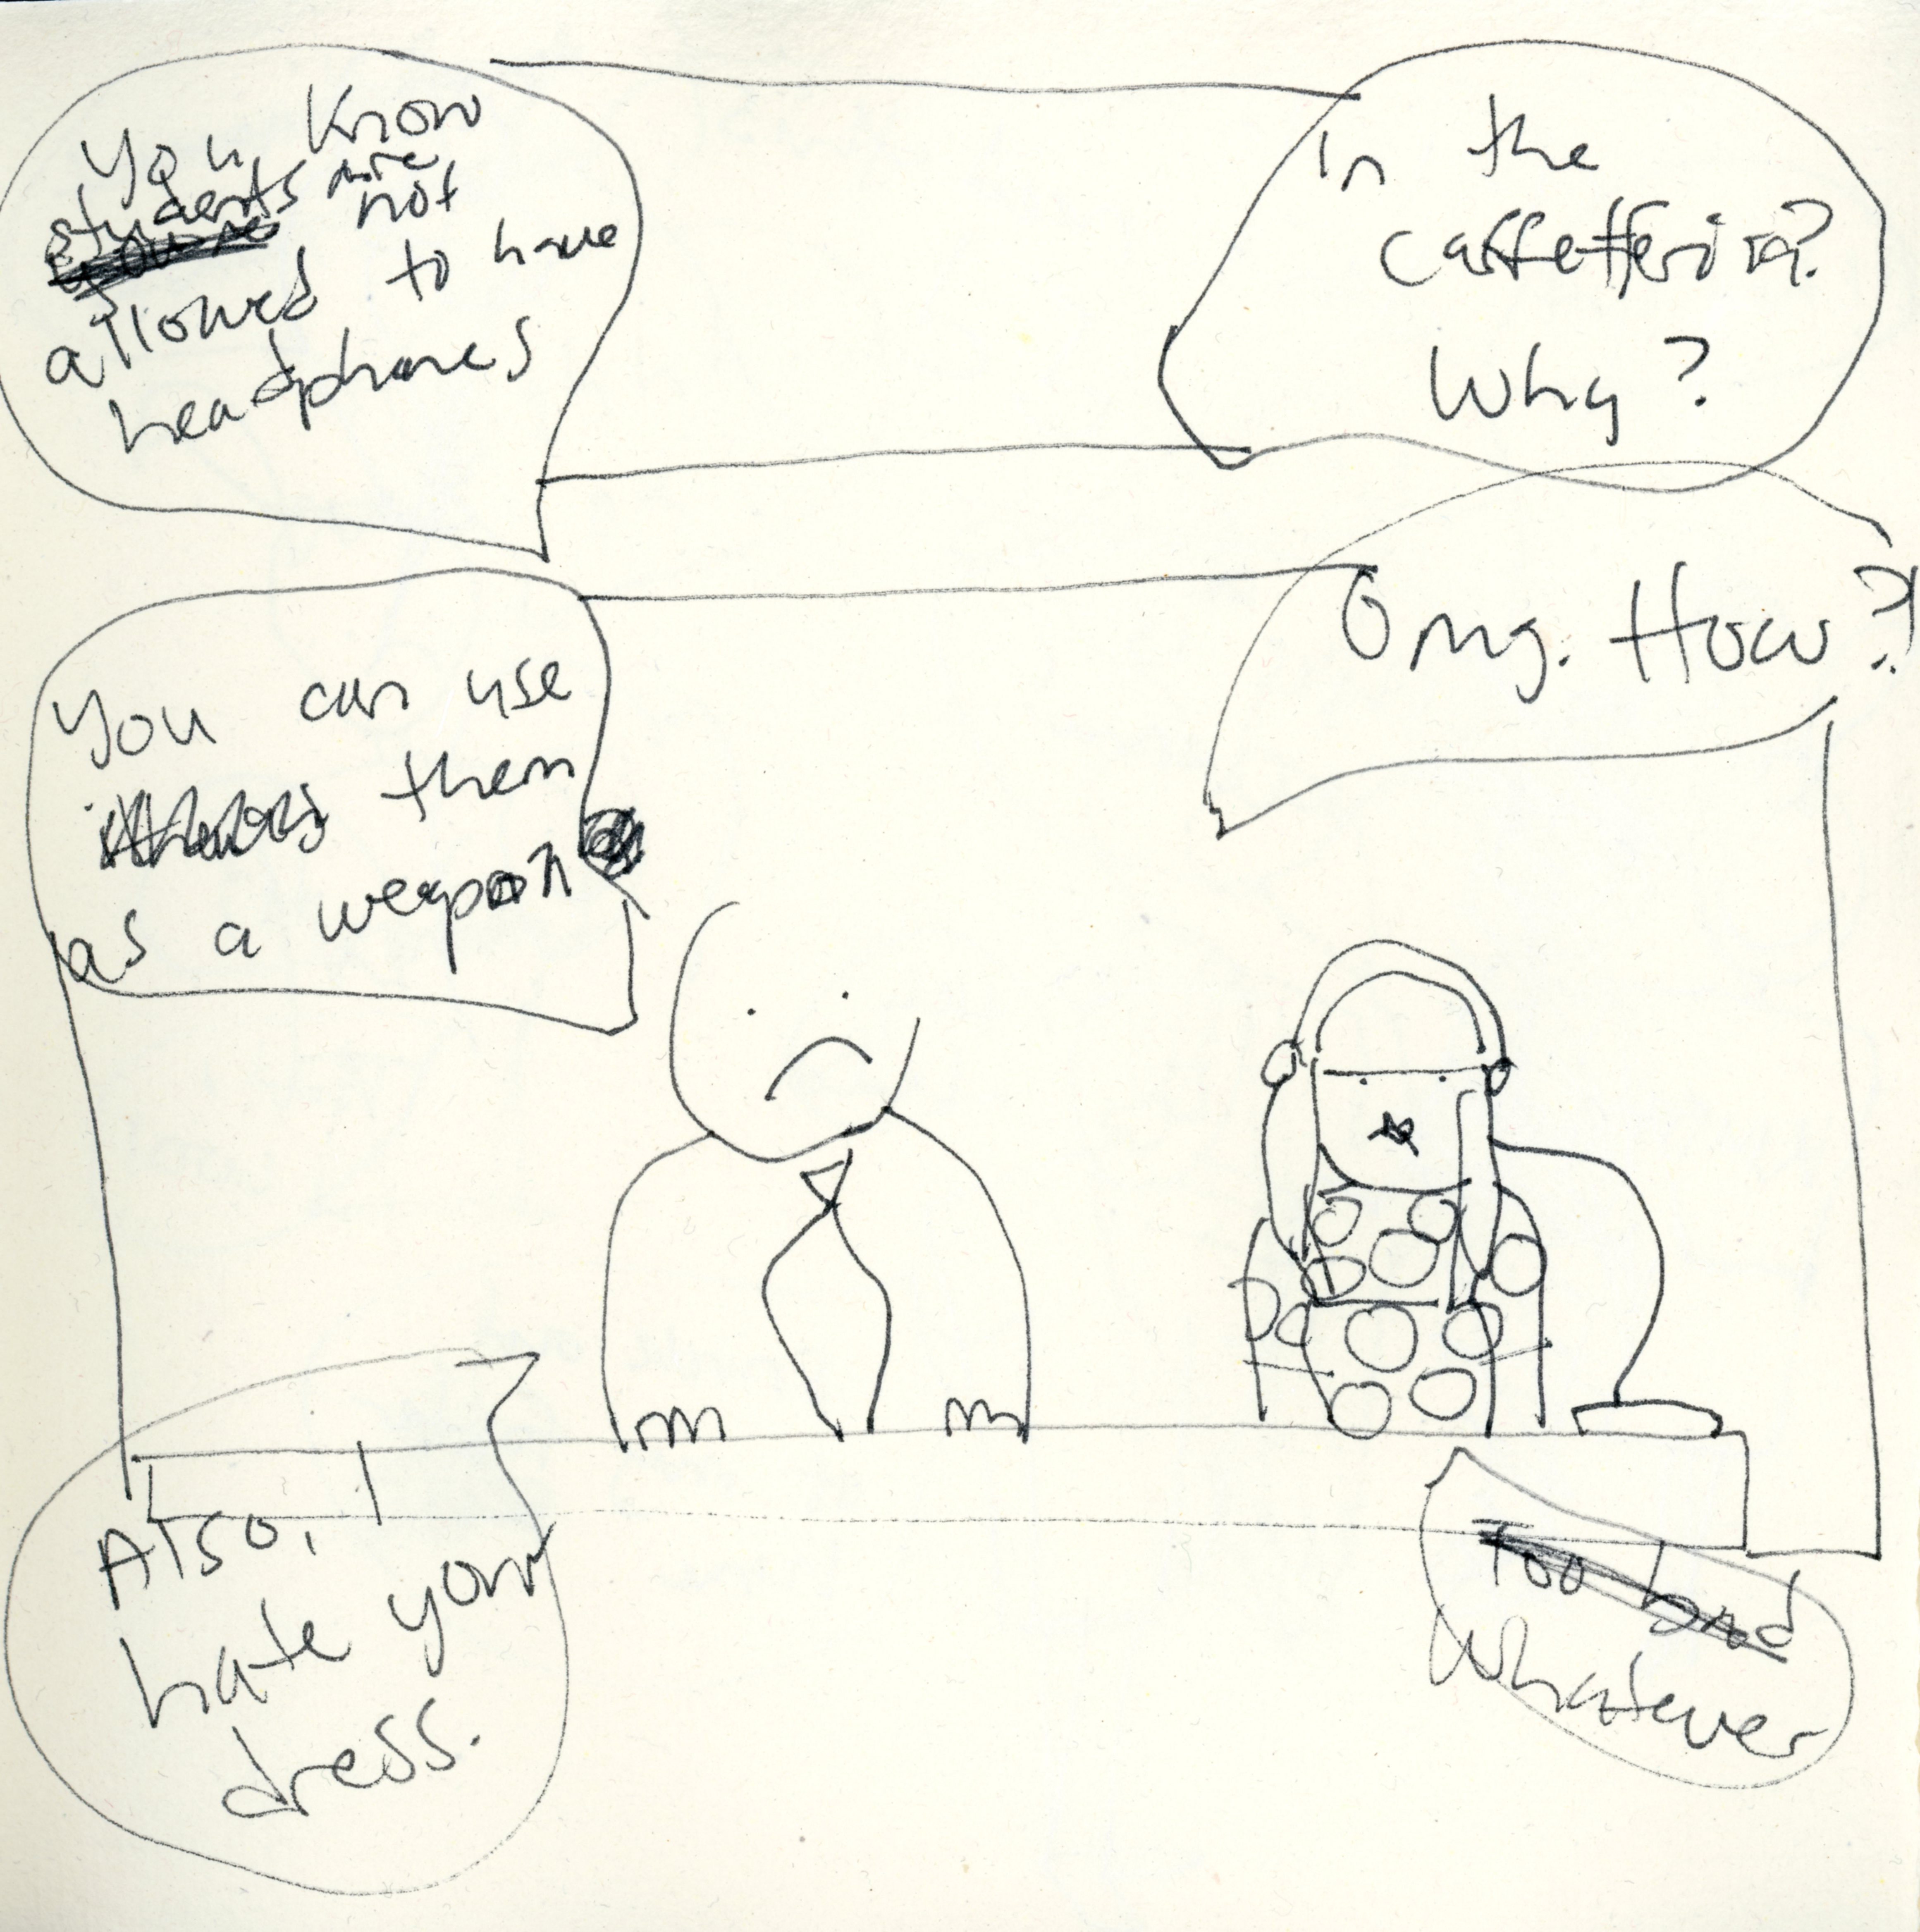 You know
students are
not
allowed to have
headphones
In the
caffefferia?
Why?
You can use
them
as a weapon
Omg. How?!
Also, I
hate your
dress.
Too bad
Whatever